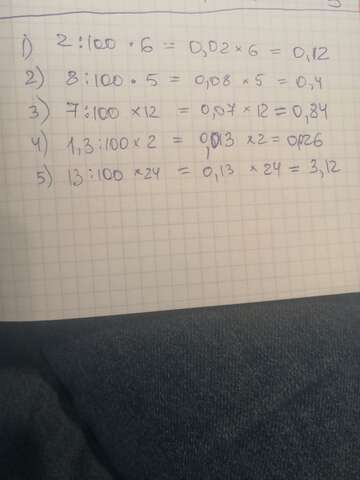 1) 2:100 · 6 = 0,02 × 6 = 0,12
2) 8:100 · 5 = 0,08 × 5 = 0,4
3) 7:100 × 12 = 0,07 × 12 = 0,84
4) 1,3:100 × 2 = 0,013 × 2 = 0,026
5) 13:100 × 24 = 0,13 × 24 = 3,12